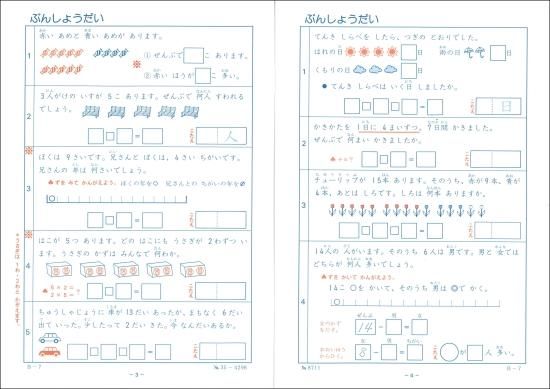 ぶんしょうだい
1
赤い あめと 青い あめが あります。
① ぜんぶで□こ あります。
※
② 赤い ほうが□こ 多い。
2
3人がけの いすが 5こ あります。ぜんぶで 何人 すわれる
でしょう。
□□□=□
こたえ
人
※
3
ぼくは 9さいです。兄さんと ぼくは、4さい ちがいです。
兄さんの 年は 何さいでしょう。
♣ずを みて かんがえよう。 ぼくの年を○ 兄さんとの ちがいの年を
□□□=□
こたえ
※
4
はこが 5つ あります。どの はこにも うさぎが 2わずつ い
ます。うさぎの かずは みんなで 何わか。
♣
5×2=
2×5=
?
□□□=□
こたえ
5
ちゅうしゃじょうに 車が 13だい あったが、まもなく 6だい
出て いった。少したって 2だい きた。今 なんだいあるか。
□□□□□=□
こたえ
B-7
-3-
№35-4296
ぶんしょうだい
1
てんき しらべを したら、つぎの とおりでした。
はれの日
□日
雨の日
□日
くもりの日
□日
● てんき しらべは いく日 しましたか。
□□□□□=□
こたえ
日
2
かきかたを 1日に 6まいずつ、7日間 かきました。
ぜんぶで 何まい かきましたか。
□□□=□
こたえ
3
チューリップが 15本 あります。そのうち、赤が 9本、黄が
4本、あとは しろです。しろは 何本 ありますか。
□□□□□=□
こたえ
4
14人の 人がいます。そのうち 6人は 男です。男と 女では
どちらが 何人 多いでしょう。
♣ずを かいて かんがえよう。
14こ ○を かいて、そのうち 男は ◎で かく。
ぜんぶ
男
女
14-□=□
女
男
ちがい
8-□=□
こたえ
が
人 多い。
№8711
-4-
B-7